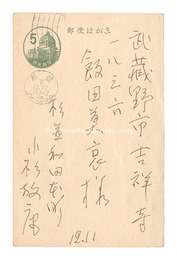 郵便はがき
5
武蔵野市吉祥寺
一八三六
飯田善哀様
杉並和田本町
小杉放庵
12.11